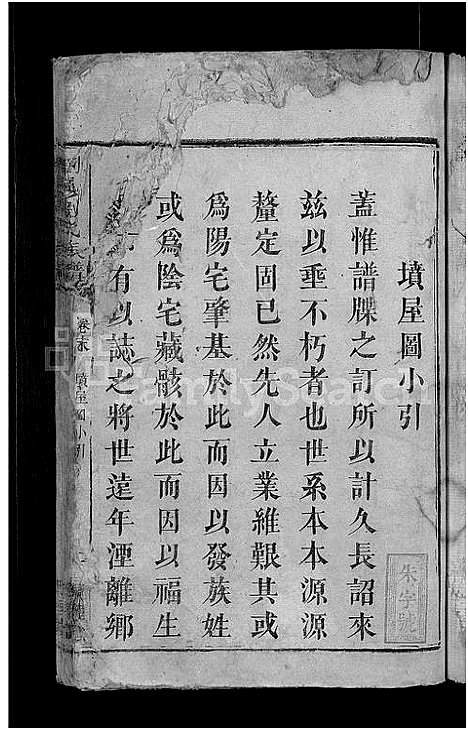 墳屋圖小引
蓋惟譜牒之訂所以計久長詔來
兹以垂不朽者也世系本本源源
釐定固已然先人立業維艱其或
爲陽宅肇基於此而因以發族姓
或爲陰宅藏骸於此而因以福生
有以誌之將世遠年湮離鄉
卷末 墳屋圖小引
朱字號
FamilySearch